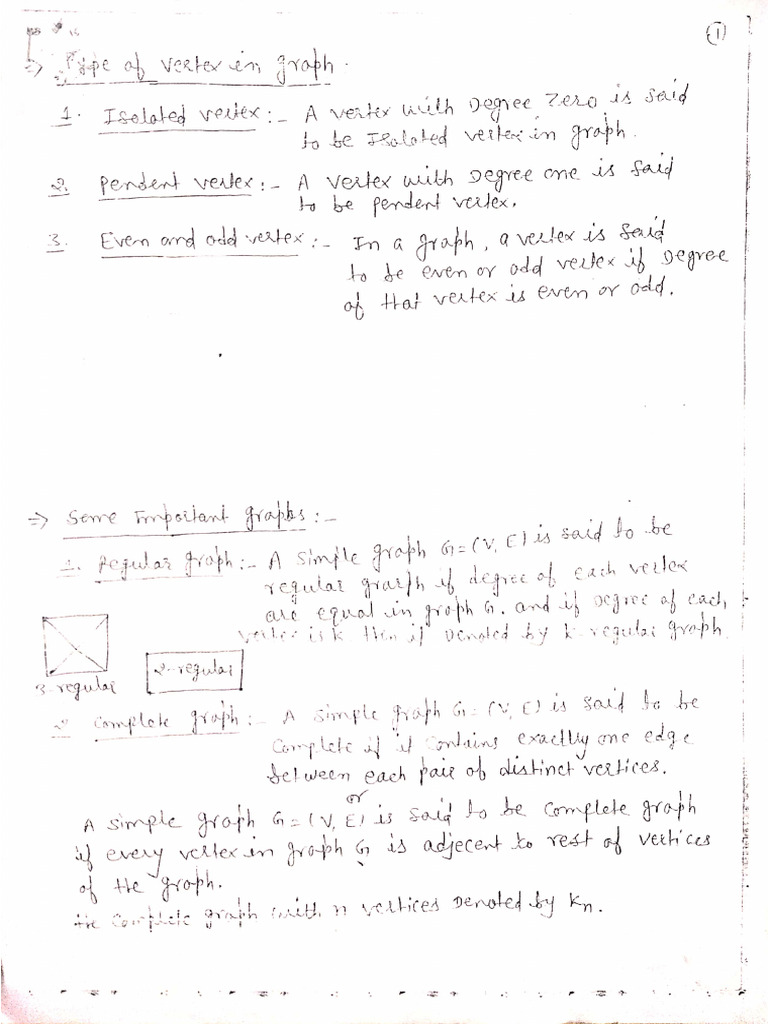 ①
=> Type of vertex in graph.
1. Isolated vertex :- A vertex with Degree Zero is said
to be Isolated vertex in graph.
2. Pendent vertex :- A vertex with Degree one is said
to be pendent vertex.
3. Even and odd vertex :- In a graph, a vertex is said
to be even or odd vertex if Degree
of that vertex is even or odd.
=> Some Important graphs :-
1. Regular graph :- A Simple graph G=(V, E) is said to be
regular graph if degree of each vertex
are equal in graph G. and if Degree of each
vertex is k then it Denoted by k-regular graph.
3-regular
2-regular
2 Complete graph :- A Simple graph G=(V, E) is said to be
Complete if it Contains exactly one edge
between each pair of distinct vertices.
or
A simple graph G=(V, E) is said to be complete graph
if every vertex in graph G is adjecent to rest of vertices
of the graph.
the complete graph with n vertices Denoted by Kn.